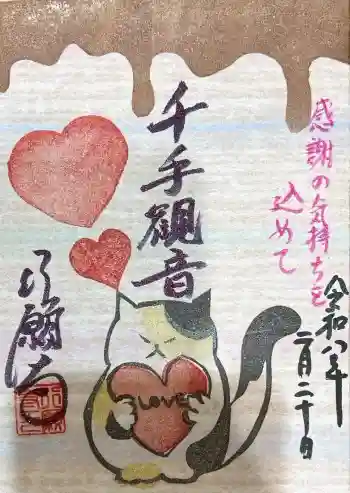 感謝の気持ちを
込めて
千手観音
令和八年
二月二十日
行願寺
LOVE